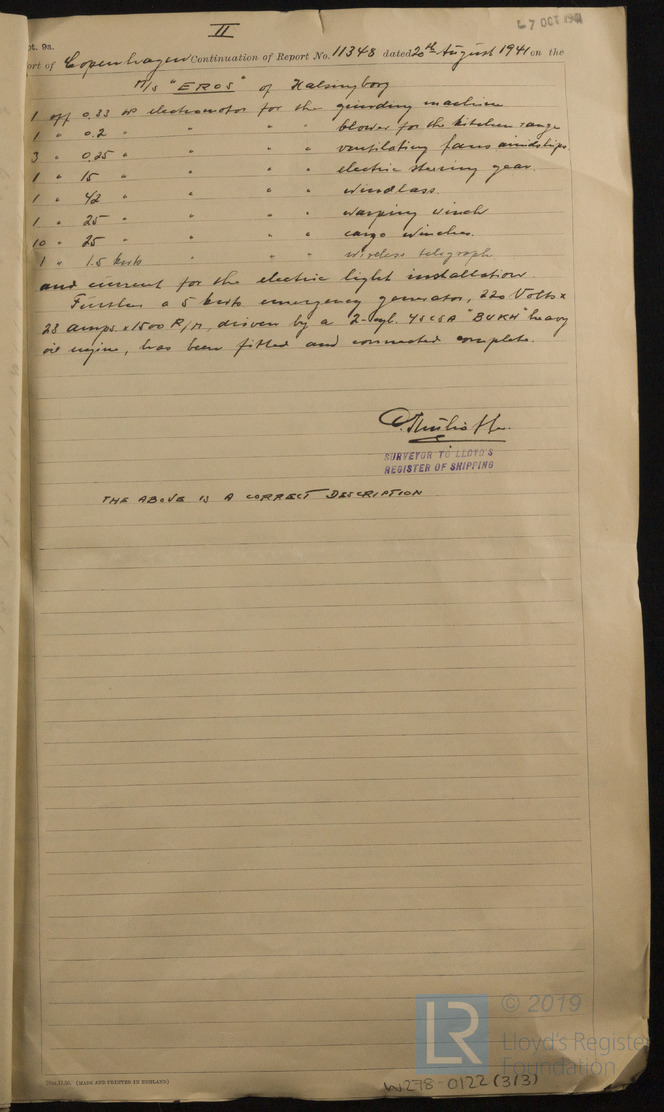 II
7 OCT 1941
pt. 9a.
ort of Copenhagen Continuation of Report No. 11348 dated 20th August 1941 on the
M/s "EROS" of Halsingborg
1 off 0.33 electromotor for the grinding machine
1 " 0.2 " " " " blower for the kitchen range
3 " 0.25 " " " " ventilating fans amidships
1 " 15 " " " " electric steering gear.
1 " 42 " " " " windlass.
1 " 25 " " " " warping winch
10 " 25 " " " " cargo winches.
1 " 1.5 kwts " " " wireless telegraph
and current for the electric light installation.
Further a 5 kwts emergency generator, 220 Volts x
23 amps x 1500 R/M, driven by a 2-cyl. 4SCSA "BUKH" heavy
oil engine, has been fitted and connected complete.
SURVEYOR TO LLOYD'S
REGISTER OF SHIPPING
THE ABOVE IS A CORRECT DESCRIPTION
(MADE AND PRINTED IN ENGLAND)
W278-0122 (3/3)
LR
© 2019
Lloyd's Register
Foundation